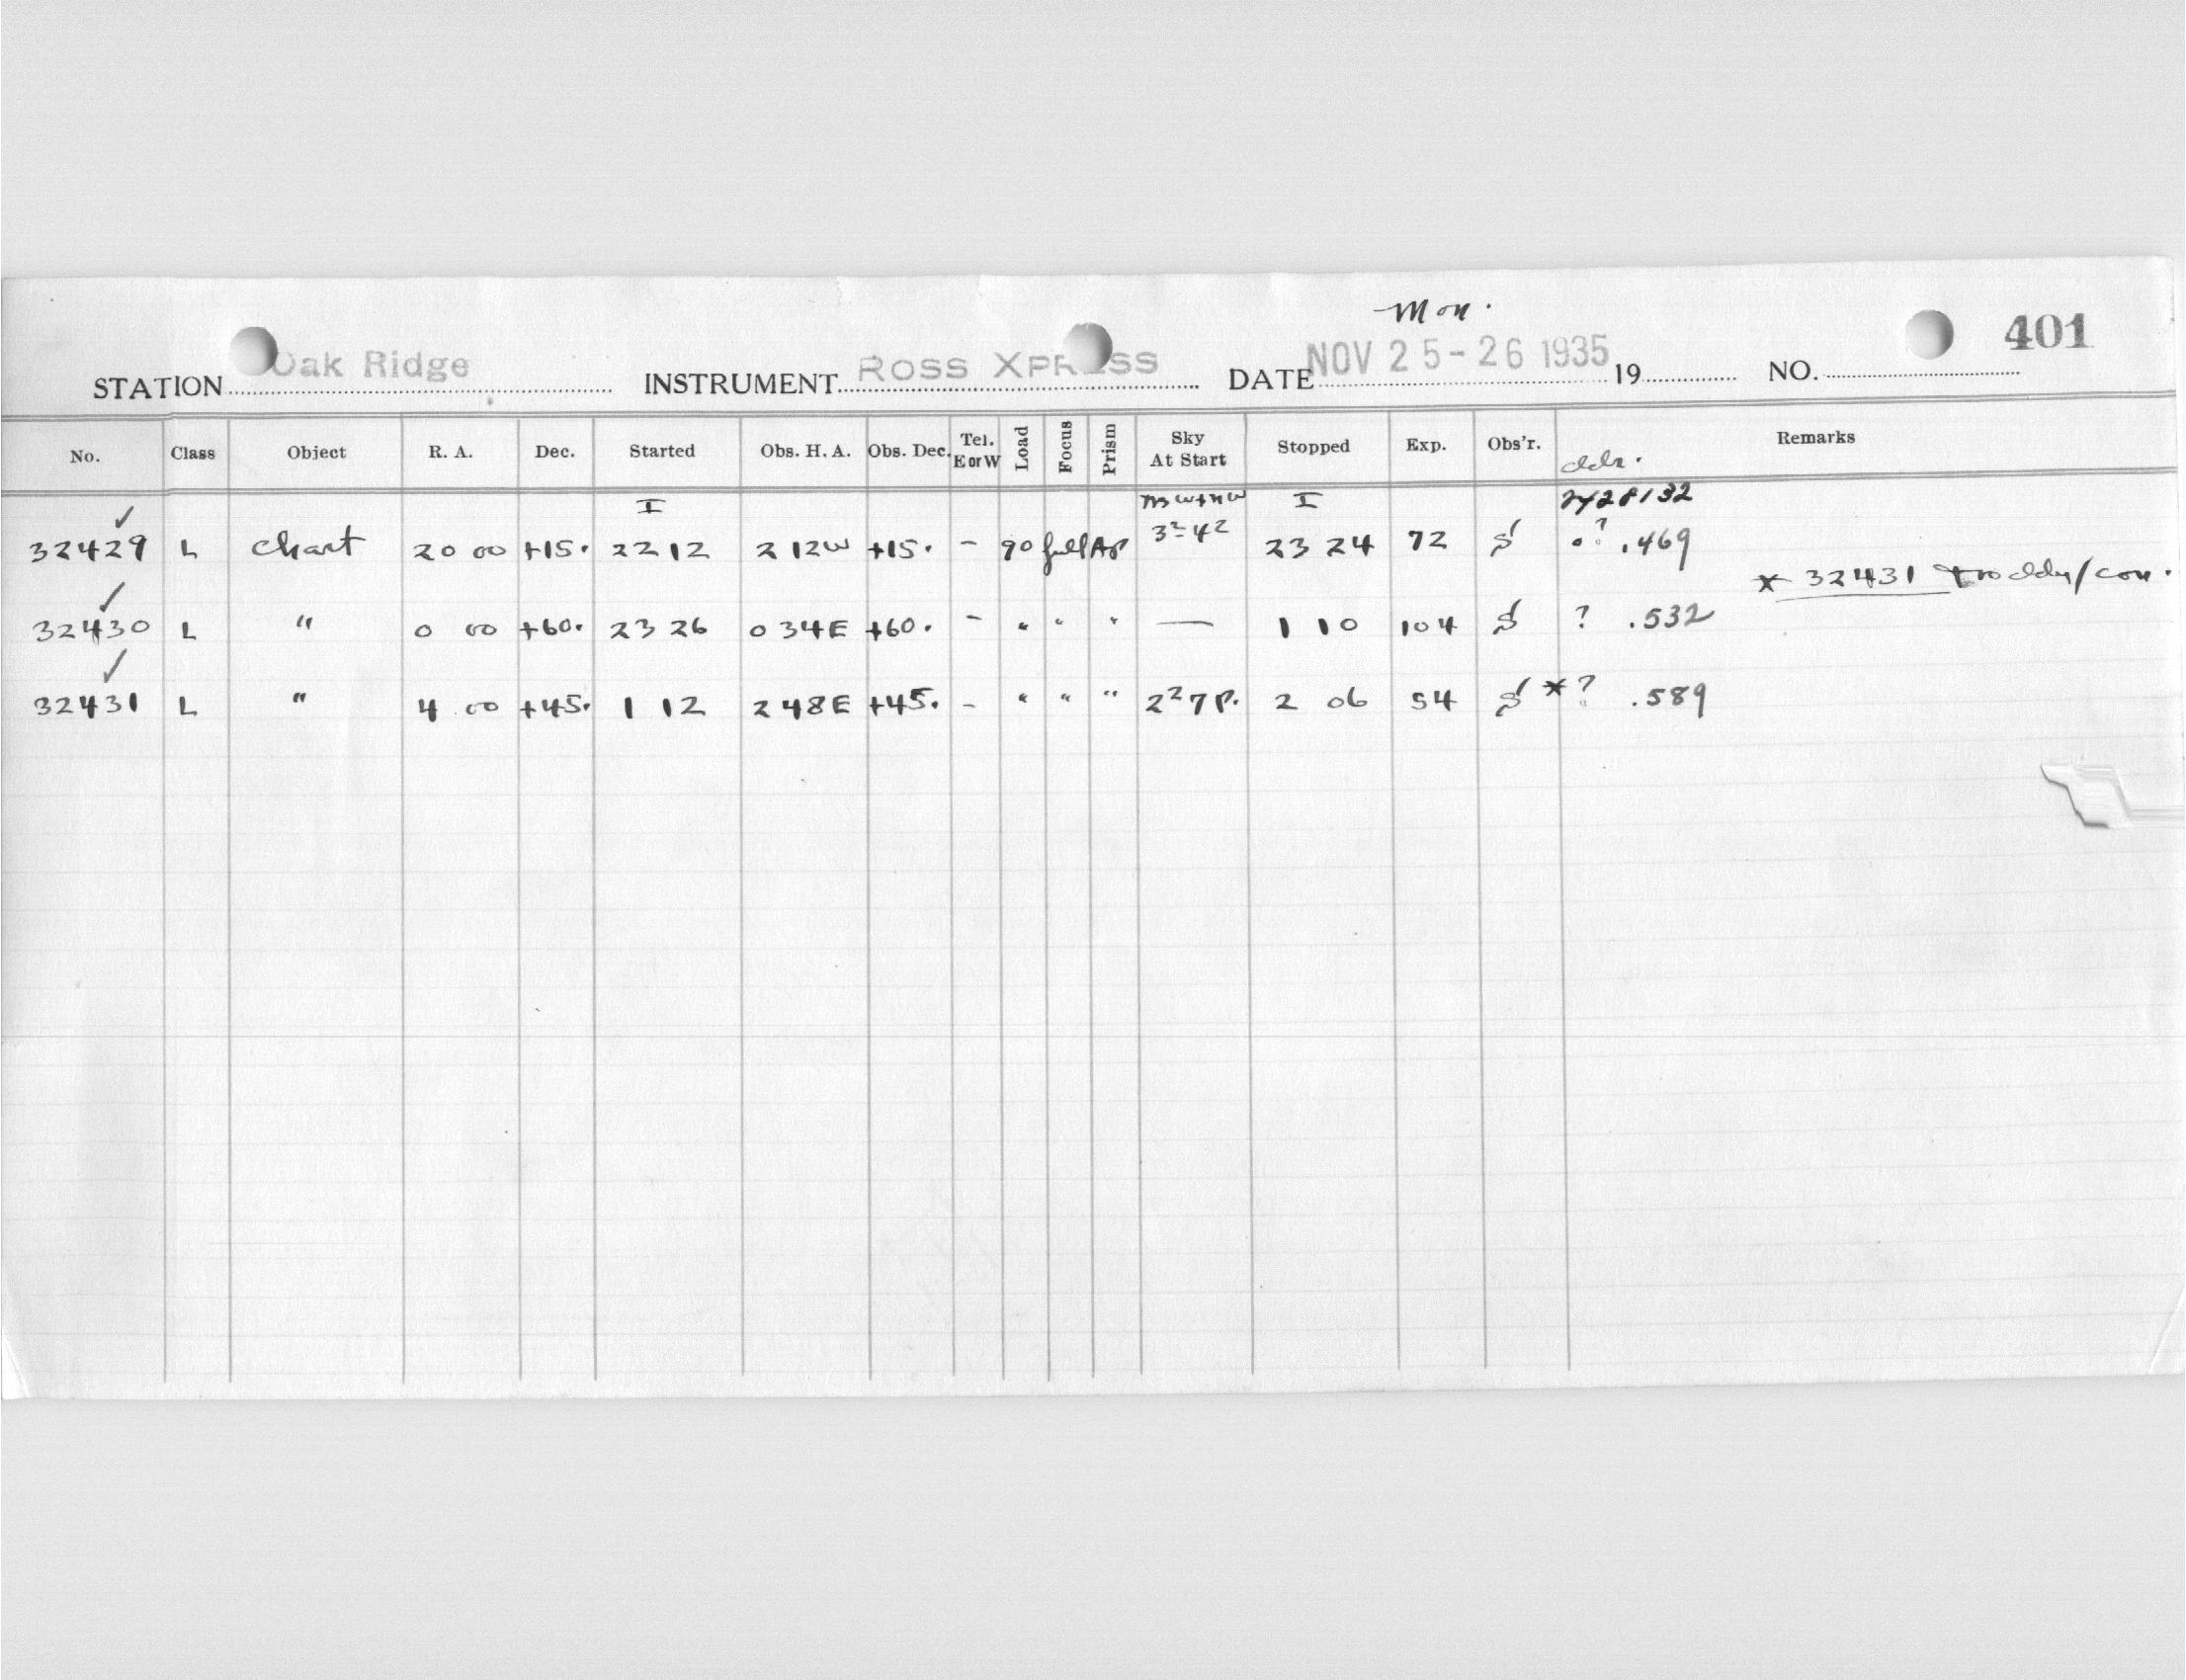 Mon.
401
STATION Oak Ridge INSTRUMENT ROSS XPRESS DATE NOV 25-26 1935 19 NO.
No. Class Object R. A. Dec. Started Obs. H. A. Obs. Dec. Tel. E or W Load Focus Prism Sky At Start Stopped Exp. Obs'r. Remarks
I I 2428132
✓
32429 L Chart 20 00 +15. 22 12 2 12W +15. - 90 full Ap 23 24 72 S ? .469
* 32431
✓
32430 L " 0 00 +60. 23 26 0 34E +60. - " " " — 1 10 104 S ? .532
✓
32431 L " 4 00 +45. 1 12 2 48E +45. - " " " 2 06 54 S * ? .589